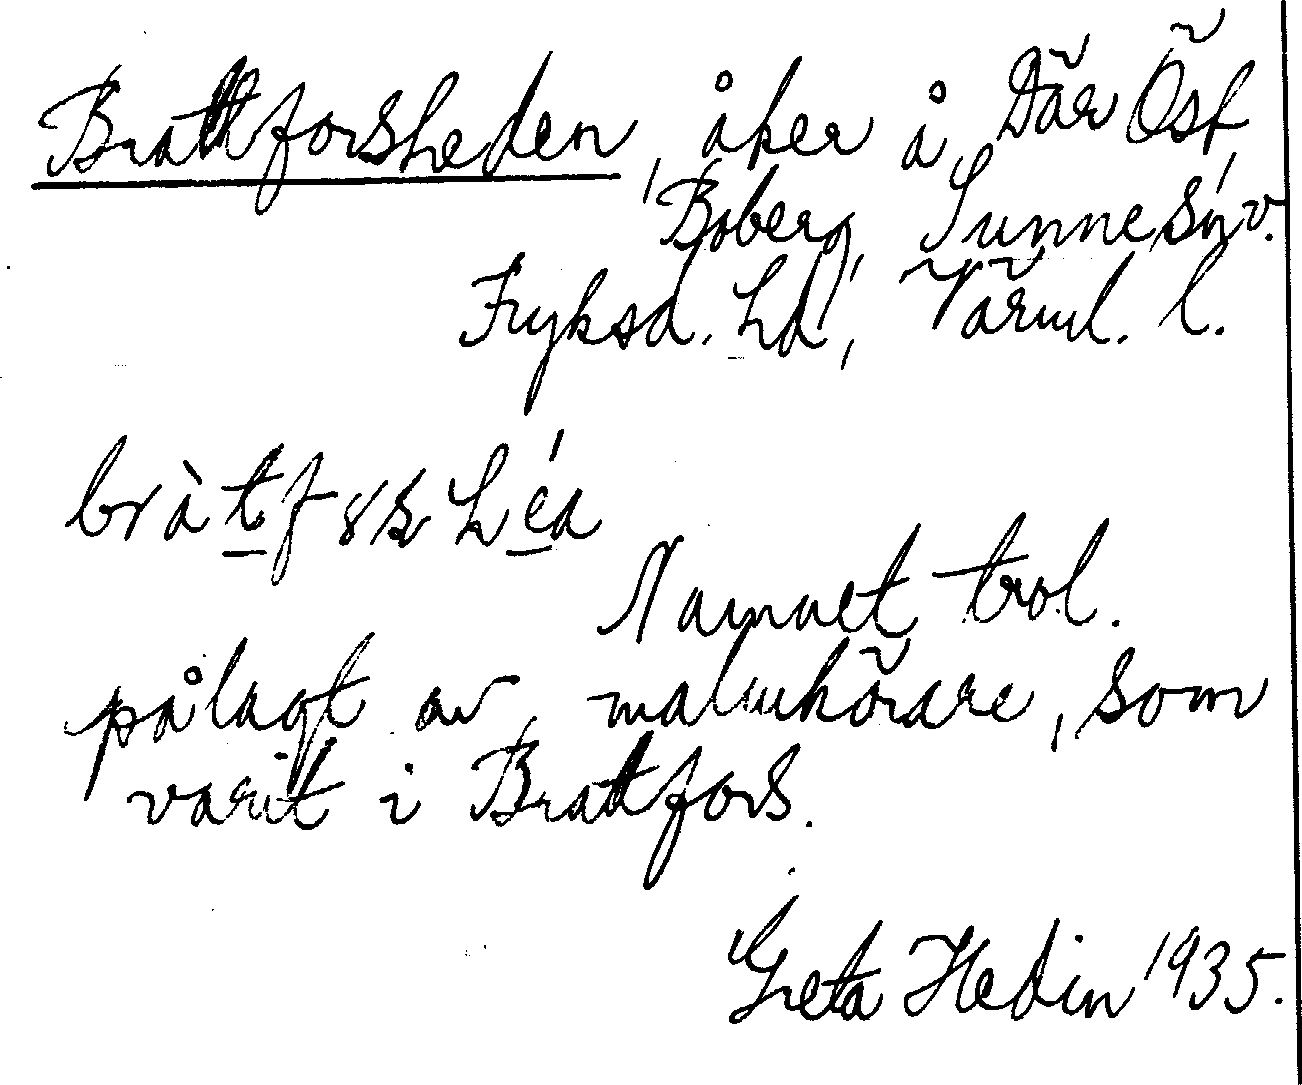 Brattforsheden, åker å Där Öst,
Boberg, Sunne sn v.
Fryksd. hd, Värml. l.
Namnet trol.
pålagt av malmkörare, som
varit i Brattfors.
Greta Hedin 1935.